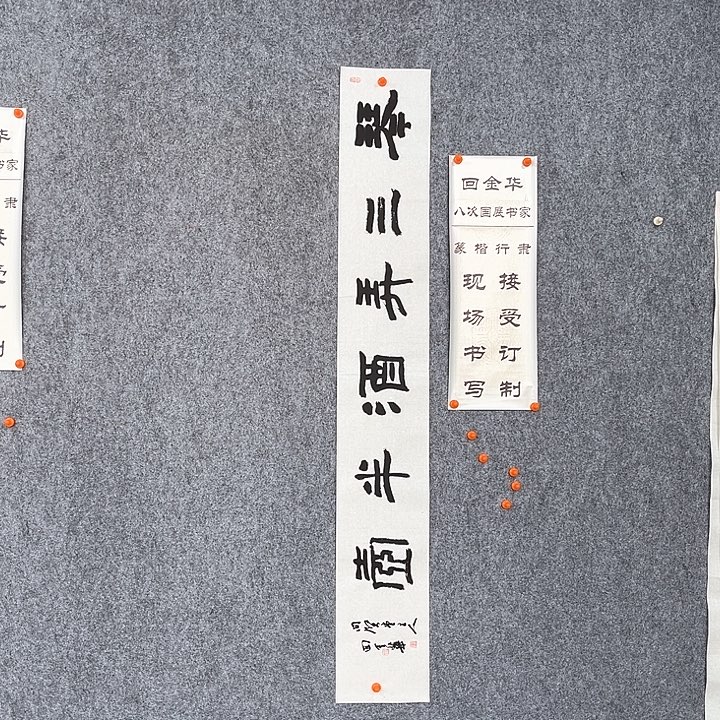 琴三弄酒半壶
回金華
回金华
八次国展书家
篆楷行隶
现场书写
接受订制
华
书家